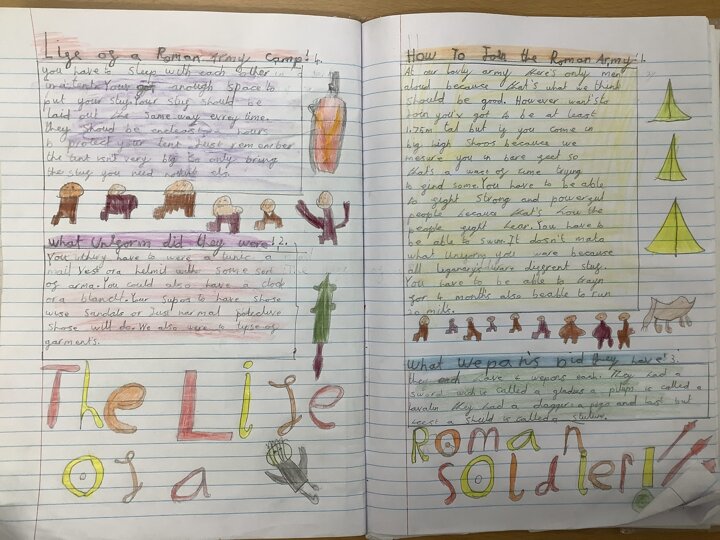 Life of a Roman army Camp! 4.
you have to sleep with each other
in a tent. Your got enough space to
put your stuf. Your stuf should be
laid out the same way evrey time.
they shoud be endless hours
to protect your tent. Just remember
the tent isn't very big so only bring
the stuf you need nothing els.
What Unigorm did they were! 2.
You they have to were a tunic, a
mail vest or a helmit with some sort of
arma. You could also have a clock
or a blanct. Your supos to have shose
wise sandals or just normal potective
shose will do. We also were 4 tipse of
garments.
The Life
Of a
How To Join the Roman Army! 1.
At our lovly army there's only men
aloud because that's what we think
should be good. However want's to
Join you'v got to be at least
1.75m tal but if you come in
big high shoos because we
mesure you in bare feet so
that's a waist of time trying
to find some. You have to be able
to fight strong and powerful
people because that's how the
people fight hear. You have to
be able to swim. It dosn't mata
what uniform you ware because
all legonarys ware difrent stuf.
You have to be able to trayn
for 4 months also be able to run
20 mils.
What Wepan's Did they have! 3.
they have 4 wepons each. They had a
sword wich is called a gladius a pilups is called a
Javalin they had a dagger a pugo and last but
leest a sheild is called a
Roman
SOldier!